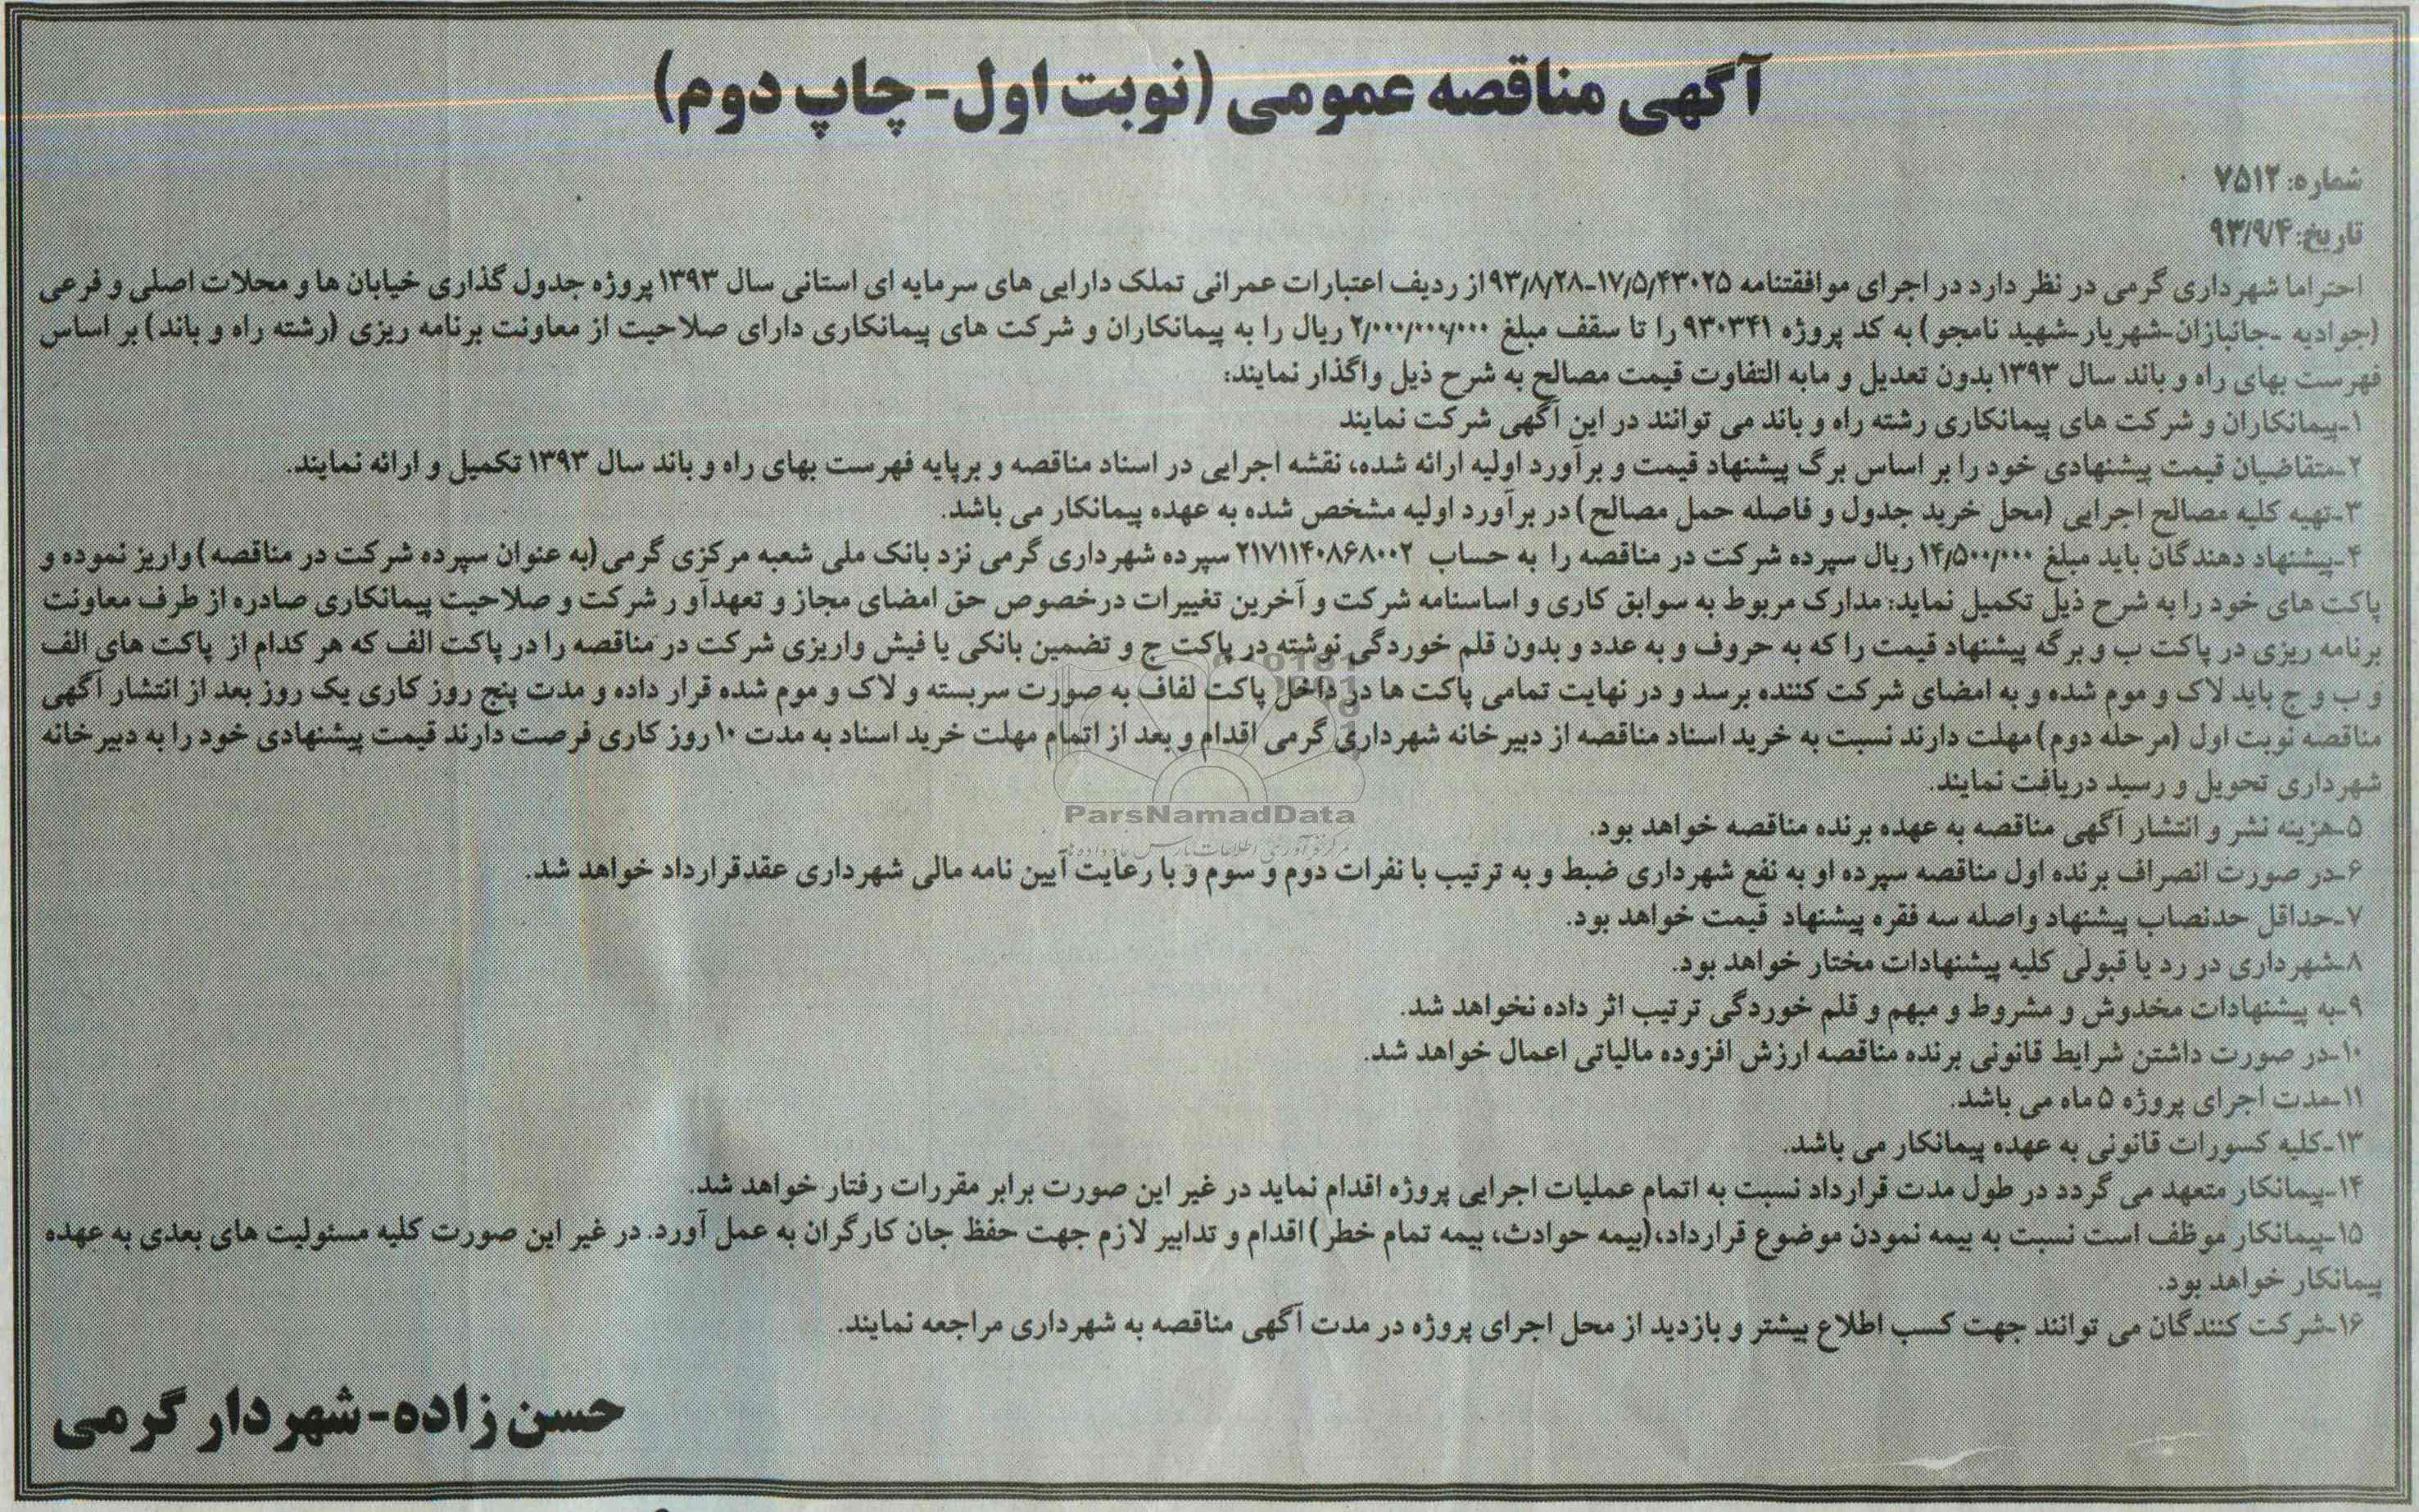 آگهی مناقصه عمومی (نوبت اول- چاپ دوم)
شماره: ۷۵۱۲
تاریخ: ۹۳/۹/۴
احتراما شهرداری گرمی در نظر دارد در اجرای موافقتنامه ۱۷/۵/۴۳۰۲۵-۹۳/۸/۲۸ از ردیف اعتبارات عمرانی تملک دارایی های سرمایه ای استانی سال ۱۳۹۳ پروژه جدول گذاری خیابان ها و محلات اصلی و فرعی
(جوادیه -جانبازان-شهریار-شهید نامجو) به کد پروژه ۹۳۰۳۴۱ را تا سقف مبلغ ۲/۰۰۰/۰۰۰/۰۰۰ ریال را به پیمانکاران و شرکت های پیمانکاری دارای صلاحیت از معاونت برنامه ریزی (رشته راه و باند) بر اساس
فهرست بهای راه و باند سال ۱۳۹۳ بدون تعدیل و مابه التفاوت قیمت مصالح به شرح ذیل واگذار نمایند:
۱-پیمانکاران و شرکت های پیمانکاری رشته راه و باند می توانند در این آگهی شرکت نمایند
۲-متقاضیان قیمت پیشنهادی خود را بر اساس برگ پیشنهاد قیمت و برآورد اولیه ارائه شده، نقشه اجرایی در اسناد مناقصه و برپایه فهرست بهای راه و باند سال ۱۳۹۳ تکمیل و ارائه نمایند.
۳-تهیه کلیه مصالح اجرایی (محل خرید جدول و فاصله حمل مصالح) در برآورد اولیه مشخص شده به عهده پیمانکار می باشد.
۴-پیشنهاد دهندگان باید مبلغ ۱۴/۵۰۰/۰۰۰ ریال سپرده شرکت در مناقصه را به حساب ۲۱۷۱۱۴۰۸۶۸۰۰۲ سپرده شهرداری گرمی نزد بانک ملی شعبه مرکزی گرمی (به عنوان سپرده شرکت در مناقصه) واریز نموده و
پاکت های خود را به شرح ذیل تکمیل نماید: مدارک مربوط به سوابق کاری و اساسنامه شرکت و آخرین تغییرات درخصوص حق امضای مجاز و تعهدآور شرکت و صلاحیت پیمانکاری صادره از طرف معاونت
برنامه ریزی در پاکت ب و برگه پیشنهاد قیمت را که به حروف و به عدد و بدون قلم خوردگی نوشته در پاکت ج و تضمین بانکی یا فیش واریزی شرکت در مناقصه را در پاکت الف که هر کدام از پاکت های الف
و ب و ج باید لاک و موم شده و به امضای شرکت کننده برسد و در نهایت تمامی پاکت ها در داخل پاکت لفاف به صورت سربسته و لاک و موم شده قرار داده و مدت پنج روز کاری یک روز بعد از انتشار آگهی
مناقصه نوبت اول (مرحله دوم) مهلت دارند نسبت به خرید اسناد مناقصه از دبیرخانه شهرداری گرمی اقدام و بعد از اتمام مهلت خرید اسناد به مدت ۱۰ روز کاری فرصت دارند قیمت پیشنهادی خود را به دبیرخانه
شهرداری تحویل و رسید دریافت نمایند.
ParsNamadData
۵-هزینه نشر و انتشار آگهی مناقصه به عهده برنده مناقصه خواهد بود.
۶-در صورت انصراف برنده اول مناقصه سپرده او به نفع شهرداری ضبط و به ترتیب با نفرات دوم و سوم و با رعایت آیین نامه مالی شهرداری عقدقرارداد خواهد شد.
۷-حداقل حدنصاب پیشنهاد واصله سه فقره پیشنهاد قیمت خواهد بود.
۸-شهرداری در رد یا قبولی کلیه پیشنهادات مختار خواهد بود.
۹-به پیشنهادات مخدوش و مشروط و مبهم و قلم خوردگی ترتیب اثر داده نخواهد شد.
۱۰-در صورت داشتن شرایط قانونی برنده مناقصه ارزش افزوده مالیاتی اعمال خواهد شد.
۱۱-مدت اجرای پروژه ۵ ماه می باشد.
۱۳-کلیه کسورات قانونی به عهده پیمانکار می باشد.
۱۴-پیمانکار متعهد می گردد در طول مدت قرارداد نسبت به اتمام عملیات اجرایی پروژه اقدام نماید در غیر این صورت برابر مقررات رفتار خواهد شد.
۱۵-پیمانکار موظف است نسبت به بیمه نمودن موضوع قرارداد،(بیمه حوادث، بیمه تمام خطر) اقدام و تدابیر لازم جهت حفظ جان کارگران به عمل آورد. در غیر این صورت کلیه مسئولیت های بعدی به عهده
پیمانکار خواهد بود.
۱۶-شرکت کنندگان می توانند جهت کسب اطلاع بیشتر و بازدید از محل اجرای پروژه در مدت آگهی مناقصه به شهرداری مراجعه نمایند.
حسن زاده-شهردار گرمی